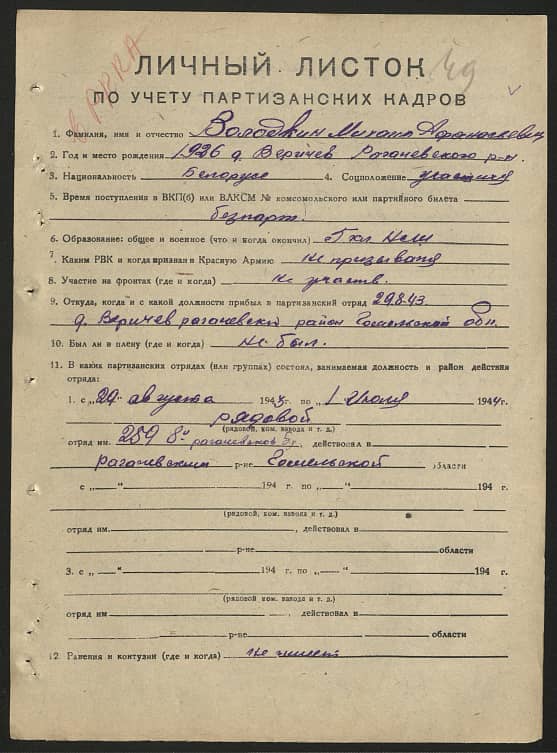 в РККА
49
ЛИЧНЫЙ ЛИСТОК
ПО УЧЕТУ ПАРТИЗАНСКИХ КАДРОВ
1. Фамилия, имя и отчество Володкин Михаил Афанасьевич
2. Год и место рождения 1926 д. Веричев Рогачевского р-н.
3. Национальность Белорусс 4. Соцположение учащийся
5. Время поступления в ВКП(б) или ВЛКСМ № комсомольского или партийного билета
безпарт.
6. Образование: общее и военное (что и когда окончил)
7. Каким РВК и когда призван в Красную Армию не призывался
8. Участие на фронтах (где и когда) не участв.
9. Откуда, когда и с какой должности прибыл в партизанский отряд 29.8.43
д. Веричев рогачевский район Гомельской обл.
10. Был ли в плену (где и когда) не был.
11. В каких партизанских отрядах (или группах) состоял, занимаемая должность и район действия
отряда:
1. с „29“ августа 1943г. по „1 Июля 1944г.
рядовой
(рядовой, ком. взвода и т. д.)
отряд им. 259 8й рогачевской действовал в
рогачевским р-не Гомельской области
с „ “ 194 г. по „ “ 194 г.
(рядовой, ком. взвода и т. д.)
отряд им. , действовал в
р-не области
3. с „ “ 194 г. по „ “ 194 г.
(рядовой, ком. взвода и т. д.)
отряд им , действовал в
р-не области
12. Ранения и контузии (где и когда) не имеет